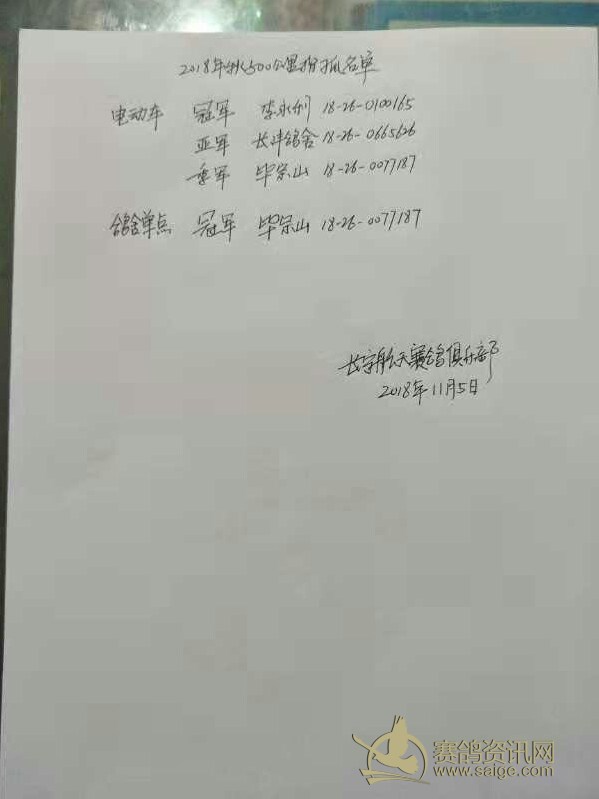 2018年秋500公里指抓名单
电动车 冠军 李永利 18-26-0100165
亚军 长津鸽舍 18-26-0665626
季军 毕宗山 18-26-0077187
鸽舍单点 冠军 毕宗山 18-26-0077187
航天赛鸽俱乐部
2018年11月5日
赛鸽资讯网
www.saige.com